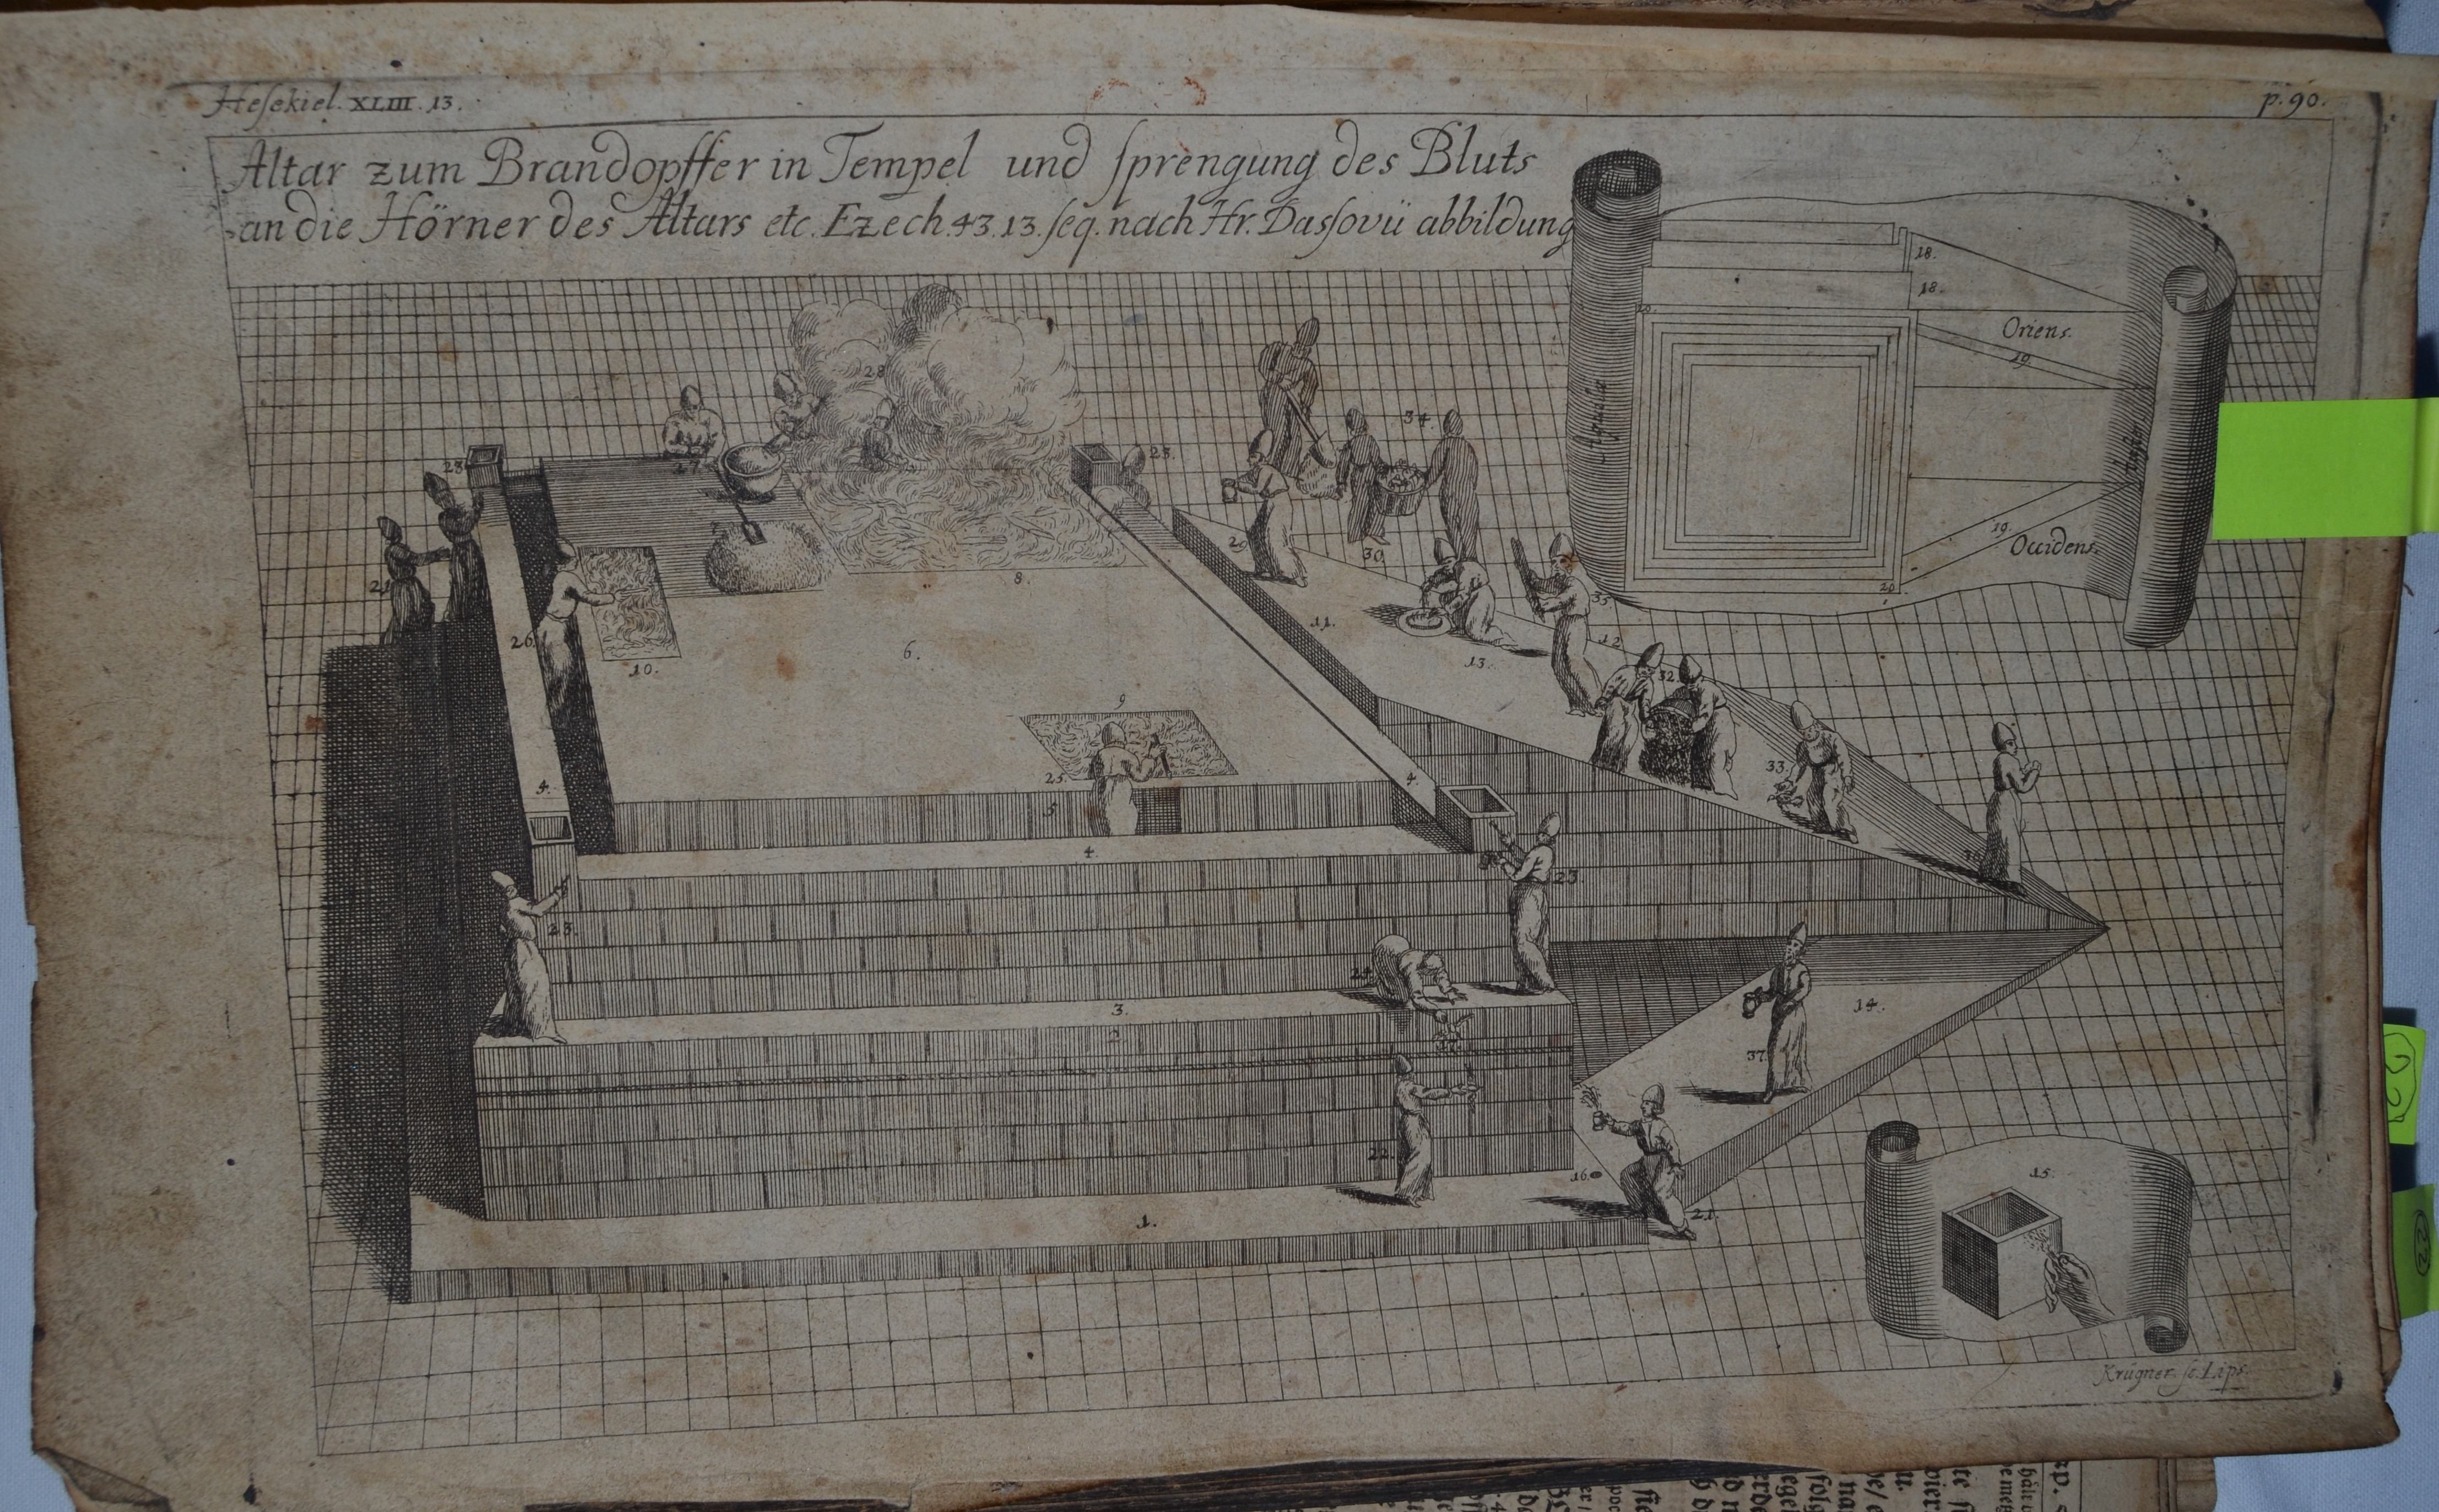 Heſekiel. XLIII. 13.
p. 90.
Altar zum Brandopffer in Tempel und ſprengung des Bluts
an die Hörner des Altars etc. Ezech. 43. 13. ſeq. nach Hr. Daſſovii abbildung
18.
18.
20.
Oriens.
19.
Aquilo
Auster
19.
Occidens.
20.
28.
34.
23.
23.
27.
7.
29.
30.
21.
8.
35.
26.
10.
11.
12.
6.
13.
32.
9
25.
33.
4.
4.
5
4.
23.
23.
24.
14.
3.
2
37.
22.
16.
15.
1.
21.
Krügner. ſc. Lips.